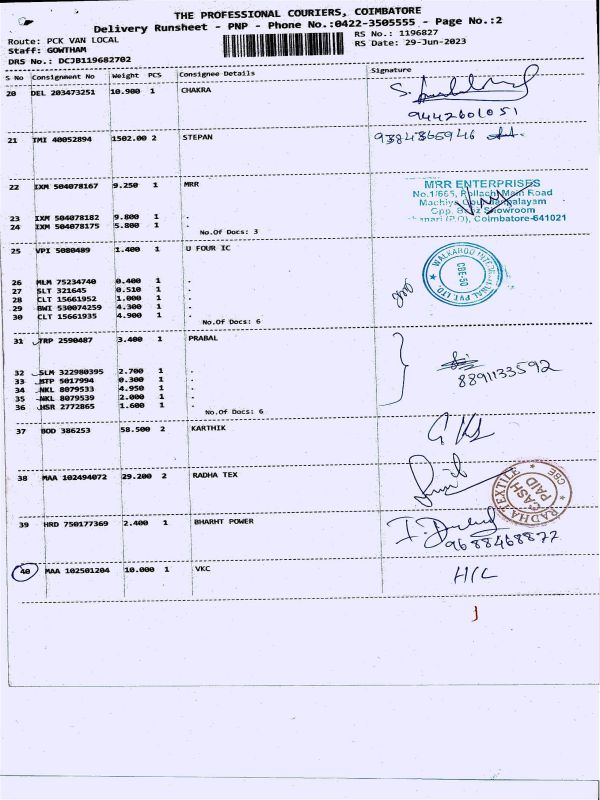 THE PROFESSIONAL COURIERS, COIMBATORE
Delivery Runsheet - PNP - Phone No.:0422-3505555 - Page No.:2
Route: PCK VAN LOCAL
RS No.: 1196827
Staff: GOWTHAM
RS Date: 29-Jun-2023
DRS No.: DCJB119682702
S No Consignment No Weight PCS Consignee Details Signature
20 DEL 203473251 10.900 1 CHAKRA
9442601051
21 IMI 40052894 1502.00 2 STEPAN
22 IXM 504078167 9.250 1 MRR
MRR ENTERPRISES
No.1/665, Pollachi Main Road
23 IXM 504078182 9.800 1 .
24 IXM 504078175 5.800 1 .
Showroom
(P.O), Coimbatore-641021
No.Of Docs: 3
25 VPI 5080489 1.400 1 U FOUR IC
CBE-50
26 MLM 75234740 0.400 1 .
27 SLT 321645 0.510 1 .
28 CLT 15661952 1.000 1 .
29 BWI 530074259 4.300 1 .
30 CLT 15661935 4.900 1 .
No.Of Docs: 6
31 TRP 2590487 3.400 1 PRABAL
8891133592
32 SLM 322980395 2.700 1 .
33 MTP 5017994 0.300 1 .
34 NKL 8079533 4.950 1 .
35 NKL 8079539 2.000 1 .
36 HSR 2772865 1.600 1 .
No.Of Docs: 6
37 BOD 386253 58.500 2 KARTHIK
38 MAA 102494072 29.200 2 RADHA TEX
RADHA TEXTILE
CBE
CASH
PAID
39 HRD 750177369 2.400 1 BHARHT POWER
9688468872
40 MAA 102501204 10.000 1 VKC
H/L